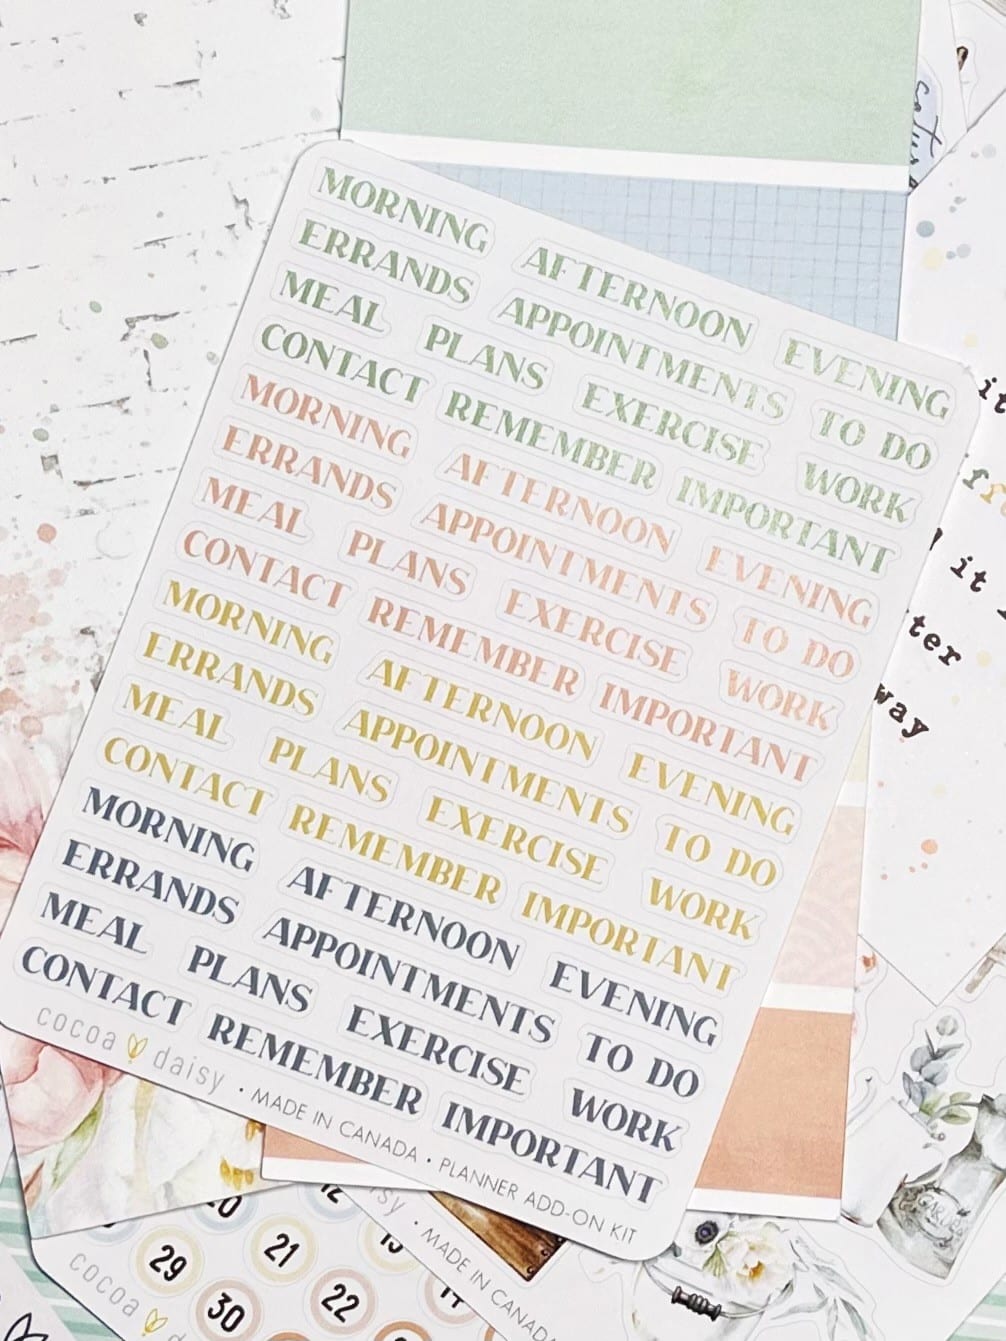 MORNING AFTERNOON EVENING
ERRANDS APPOINTMENTS TO DO
MEAL PLANS EXERCISE WORK
CONTACT REMEMBER IMPORTANT
MORNING AFTERNOON EVENING
ERRANDS APPOINTMENTS TO DO
MEAL PLANS EXERCISE WORK
CONTACT REMEMBER IMPORTANT
MORNING AFTERNOON EVENING
ERRANDS APPOINTMENTS TO DO
MEAL PLANS EXERCISE WORK
CONTACT REMEMBER IMPORTANT
MORNING AFTERNOON EVENING
ERRANDS APPOINTMENTS TO DO
MEAL PLANS EXERCISE WORK
CONTACT REMEMBER IMPORTANT
cocoa daisy · MADE IN CANADA · PLANNER ADD-ON KIT
it
it
ter
way
20 12
29 21 13
30 22
cocoa
isy · MADE IN CANADA